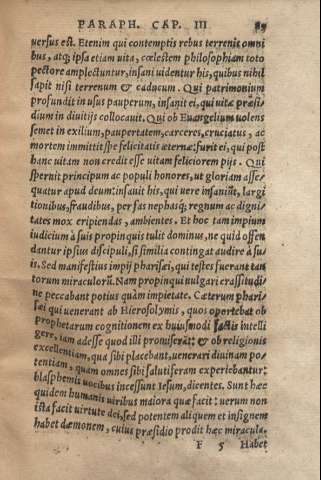 PARAPH. CAP. III 89
uersus est. Etenim qui contemptis rebus terrenis omni
bus, atq; ipsa etiam uita, cœlestem philosophiam toto
pectore amplectuntur, insani uidentur his, quibus nihil
sapit nisi terrenum & caducum. Qui patrimonium
profundit in usus pauperum, insanit ei, qui uitæ præsi
dium in diuitijs collocauit. Qui ob Euangelium uolens
semet in exilium, paupertatem, carceres, cruciatus, ac
mortem immittit spe felicitatis æternæ: furit ei, qui post
hanc uitam non credit esse uitam feliciorem pijs. Qui
spernit principum ac populi honores, ut gloriam asse
quatur apud deum: insanit his, qui uere insaniūt, largi
tionibus, fraudibus, per fas nephasq; regnum ac digni
tates mox eripiendas, ambientes. Et hoc tam impium
iudicium à suis propinquis tulit dominus, ne quid offen
dantur ipsius discipuli, si similia contingat audire à su/
is. Sed manifestius impij pharisæi, qui testes fuerant tan
torum miraculorū. Nam propinqui uulgari crassitudi
ne peccabant potius quàm impietate. Cæterum phari/
sæi qui uenerant ab Hierosolymis, quos oportebat ob
Prophetarum cognitionem ex huiusmodi factis intelli
gere, iam adesse quod illi promiserāt: & ob religionis
excellentiam, qua sibi placebant, uenerari diuinam po/
tentiam, quam omnes sibi salutiferam experiebantur:
blasphemis uocibus incessunt Iesum, dicentes. Sunt hæc
quidem humanis uiribus maiora quæ facit: uerum non
ista facit uirtute dei, sed potentem aliquem et insignem
habet dæmonem, cuius præsidio prodit hæc miracula.
F 5 Habet